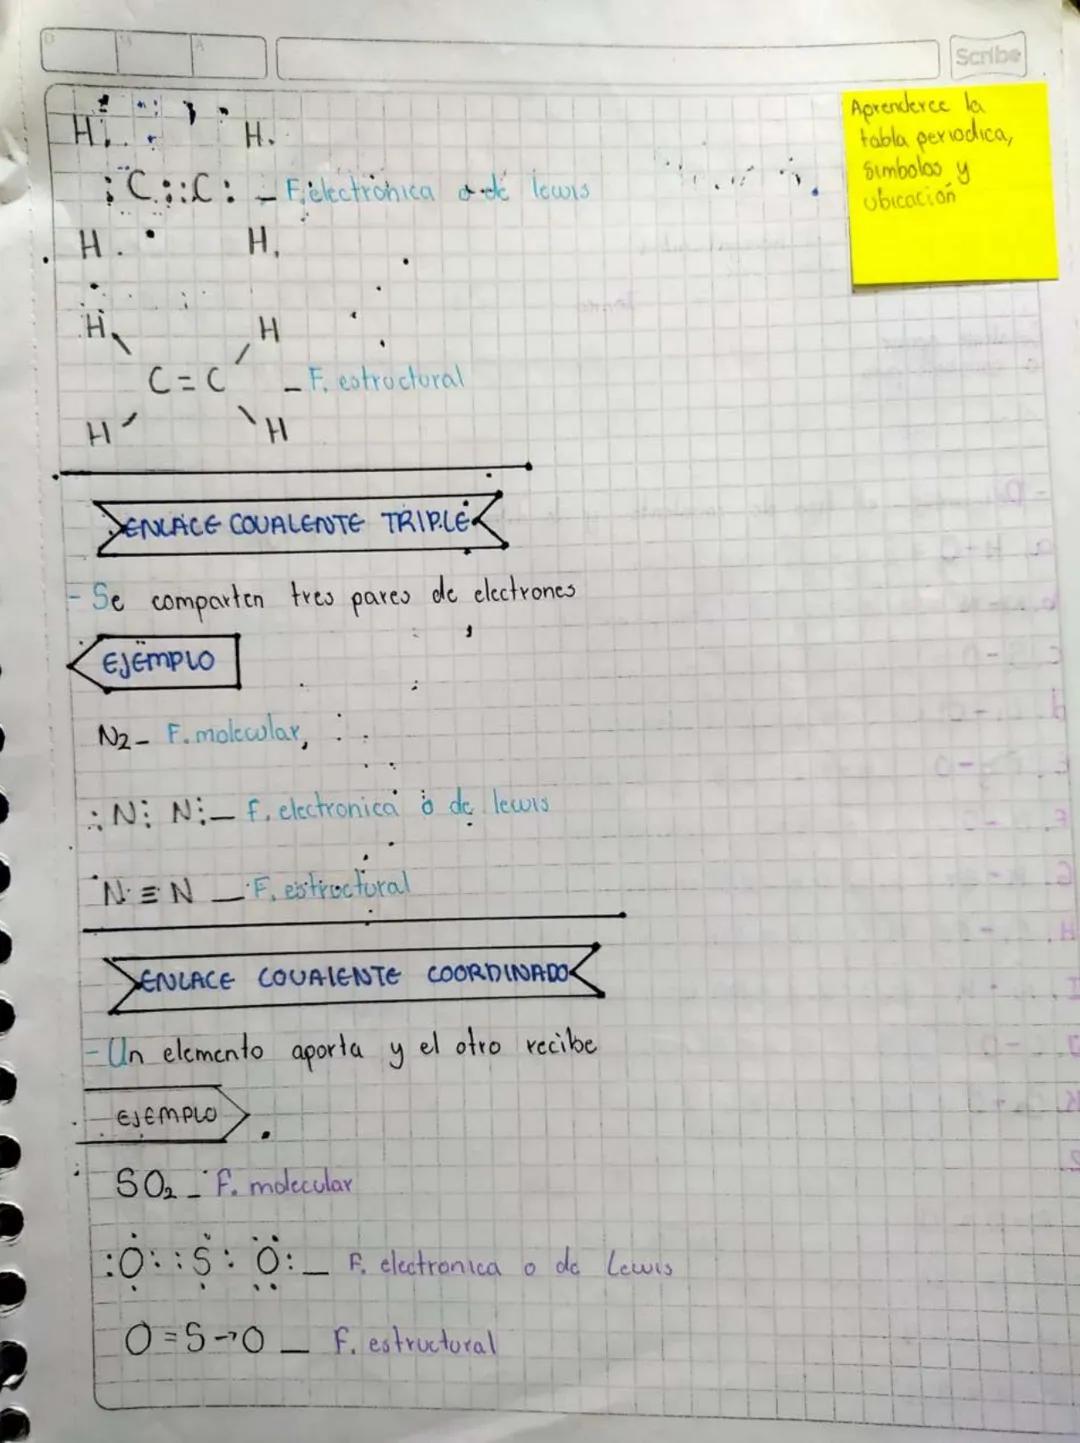 D M A
Scribe
Aprenderce la
tabla periodica,
simbolos y
ubicación
H. H.
: C :: C : - F. electrónica o de lewis
H. H.
H H
C = C - F. estructural
H H
ENLACE COVALENTE TRIPLE
- Se comparten tres pares de electrones
EJEMPLO
N2 - F. molecular,
: N ⋮ N : - F. electronica o de lewis
N ≡ N - F. estructural
ENLACE COVALENTE COORDINADO
- Un elemento aporta y el otro recibe
EJEMPLO
SO₂ - F. molecular
:O: :S: O: - F. electronica o de Lewis
O = S → O - F. estructural